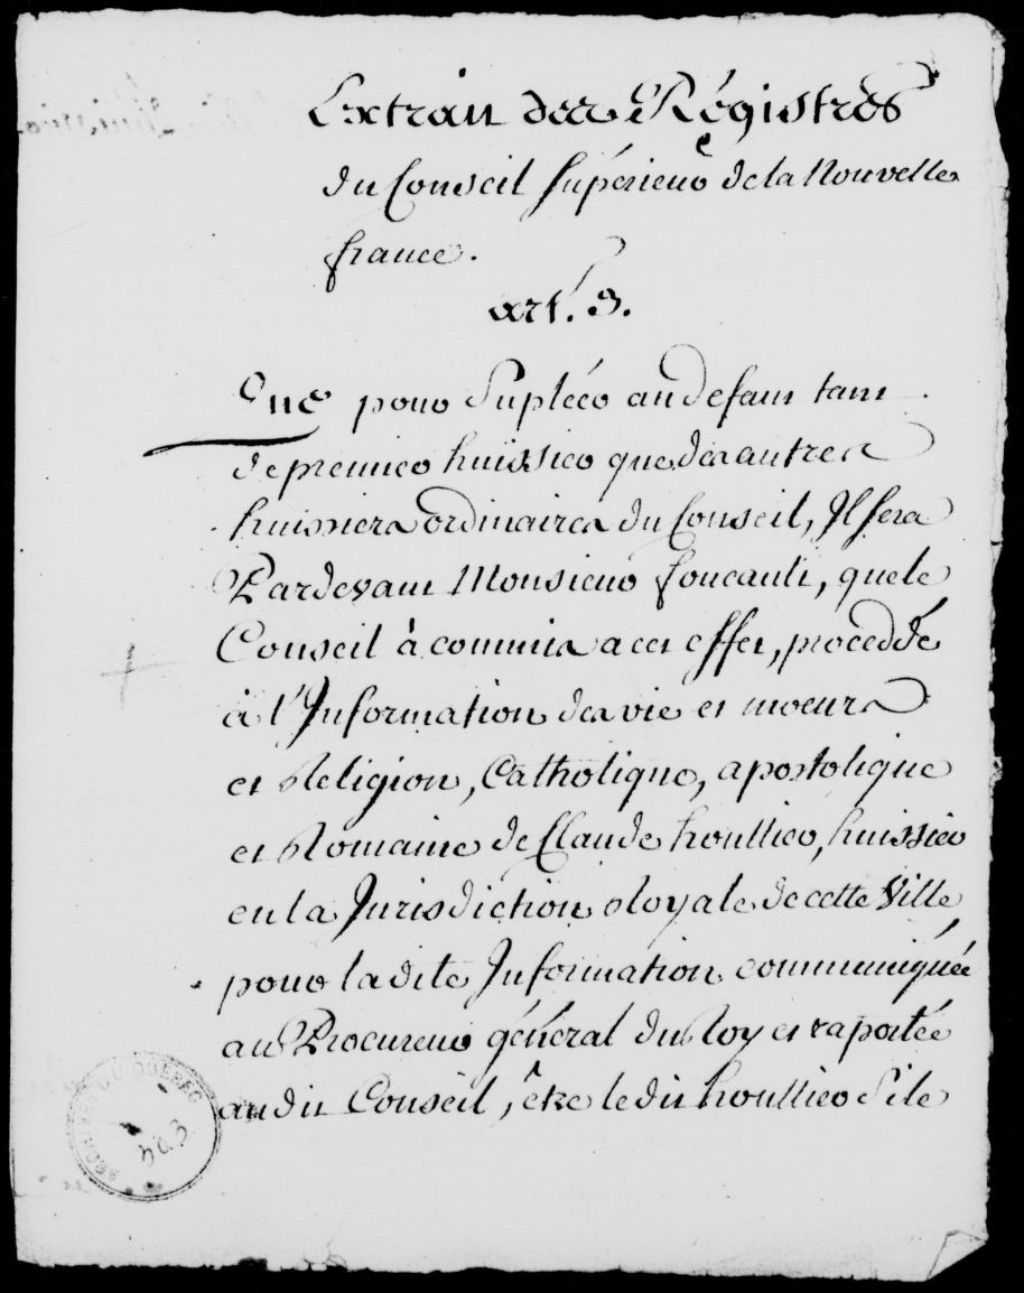 Extrait des Régistres
du Conseil Supérieur de la Nouvelle
france.
art. 3.
Que pour Supléer au defaut tant
de premier huissier que des autres
huissiers ordinaires du Conseil, Il sera
Pardevant Monsieur foucault, que le
Conseil à commis a cet effet, proceddé
à l'Information des vie et moeurs
et Religion, Catholique, apostolique
et Romaine de Claude houllier, huissier
en la Jurisdiction Royale de cette Ville
pour la dite Information communiquée
au Procureur général du Roy et raportée
au dit Conseil, être le dit houllier Si le